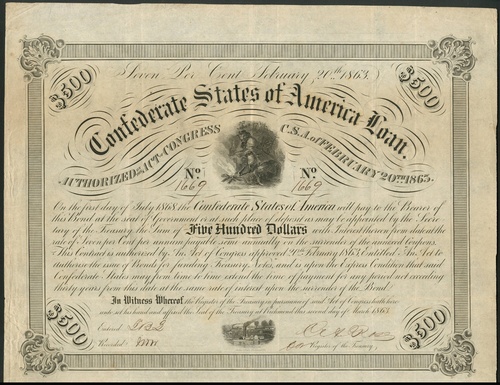 $500 $500
Seven Per Cent February 20th 1863.
Confederate States of America Loan.
AUTHORIZED BY ACT OF CONGRESS C.S.A. OF FEBRUARY 20TH 1863.
No. No.
1669 1669
On the first day of July 1868 the Confederate States of America will pay to the Bearer of
this Bond at the seat of Government or at such place of deposit as may be appointed by the Secre-
tary of the Treasury, the Sum of Five Hundred Dollars with Interest thereon from date at the
rate of Seven per Cent per annum payable semi annually on the surrender of the annexed coupons.
This Contract is authorized by An Act of Congress approved 20th February 1863, Entitled An Act to
authorize the issue of Bonds for funding Treasury Notes, and is upon the Express Condition that said
Confederate States may from time to time extend the time of payment for any period not exceeding
thirty years from this date at the same rate of interest upon the surrender of the Bond.
In Witness Whereof, the Register of the Treasury in pursuance of said Act of Congress hath here
unto set his hand and affixed the Seal of the Treasury at Richmond this second day of March 1863.
Entered
Recorded Register of the Treasury
$500 $500